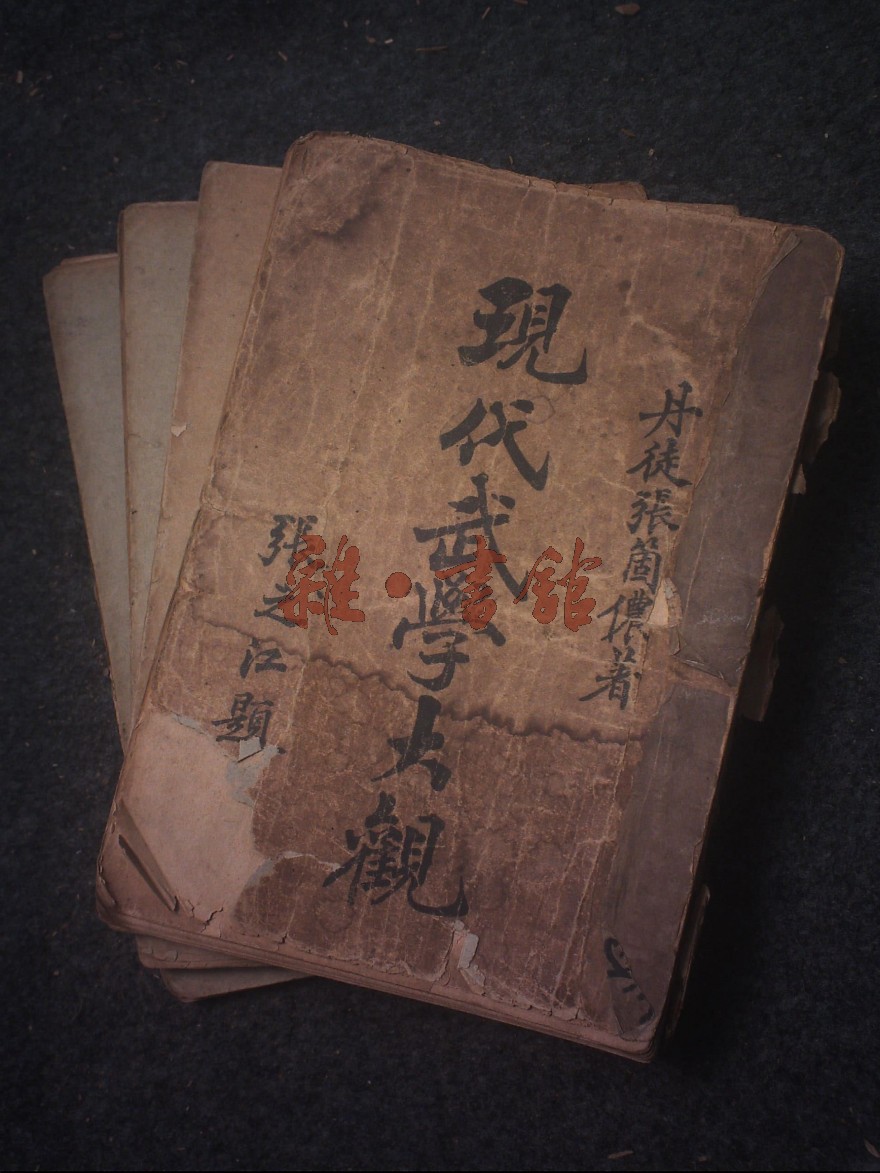 丹徒張箇儂著
現代武學大觀
張之江題
雜·書館